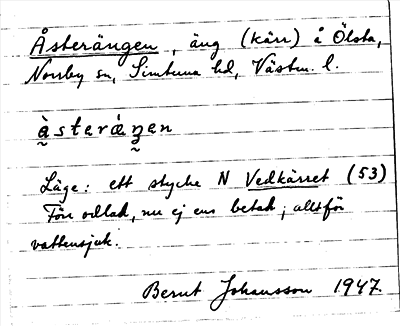 Åsterängen, äng (kärr) å Ölsta,
Norrby sn, Simtuna hd, Västm. l.
à̰sterǽŋ̰en
Läge: ett stycke N Vedkärret (53)
Förr odlad, nu ej ens betad; alltför
vattensjuk.
Bernt Johansson 1947.